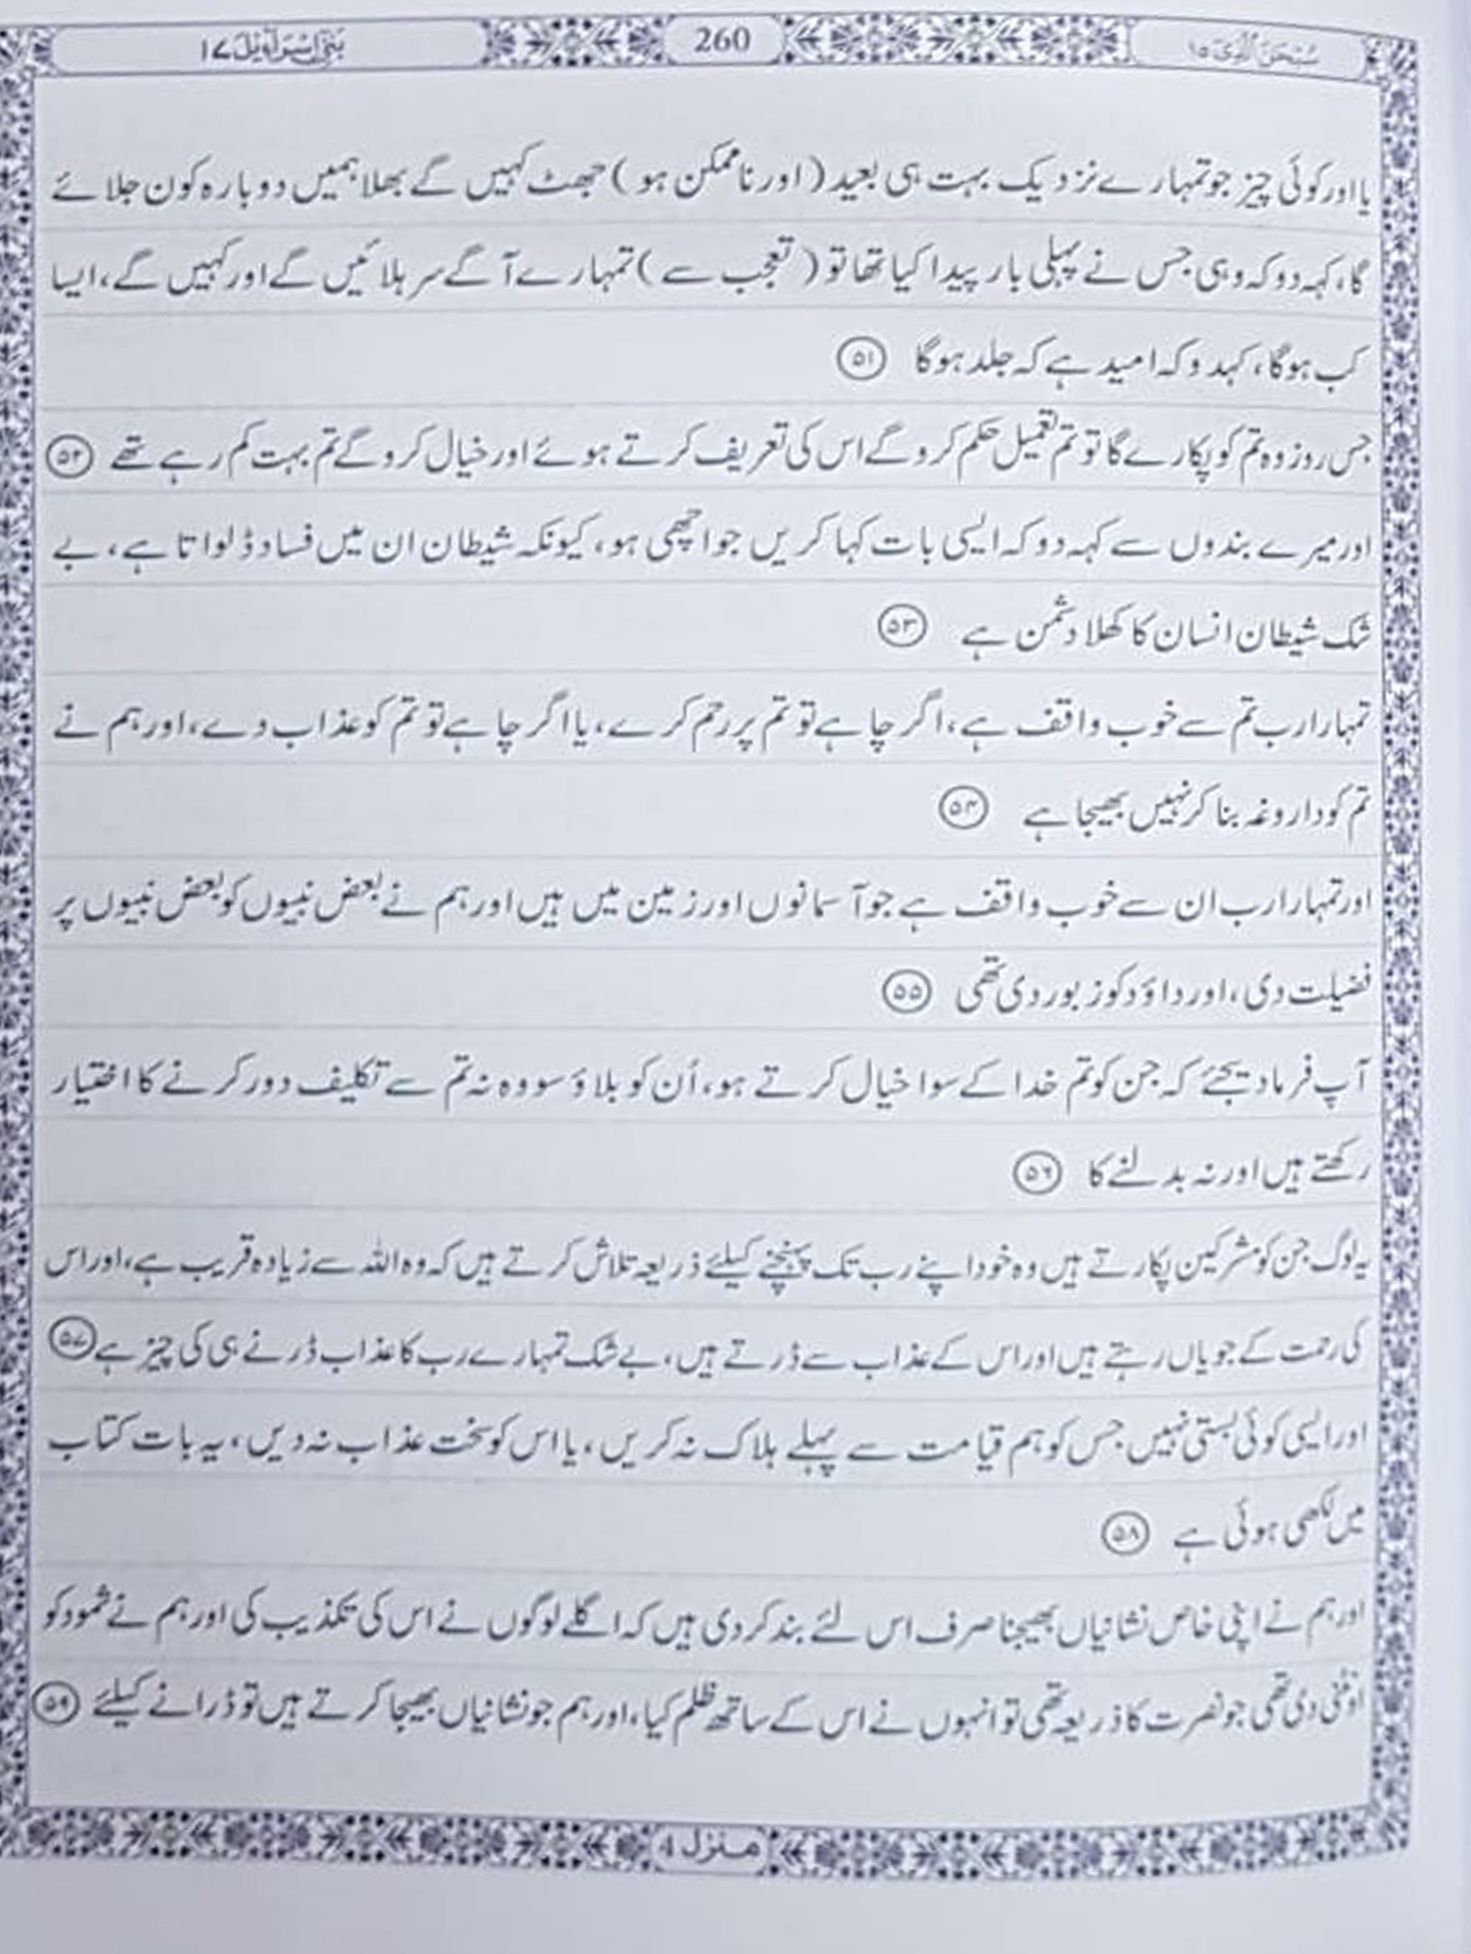 سُبْحٰنَ الَّذِیْ ۱۵
260
بَنِیْ اِسْرَآءِیْل ۱۷
یا اور کوئی چیز جو تمہارے نزدیک بہت ہی بعید (اور ناممکن ہو) جھٹ کہیں گے بھلا ہمیں دوبارہ کون جلائے
گا، کہہ دو کہ وہی جس نے پہلی بار پیدا کیا تھا تو (تعجب سے) تمہارے آگے سر ہلائیں گے اور کہیں گے، ایسا
کب ہوگا، کہدو کہ امید ہے کہ جلد ہوگا ۵۱
جس روز وہ تم کو پکارے گا تو تم تعمیل حکم کرو گے اس کی تعریف کرتے ہوئے اور خیال کرو گے تم بہت کم رہے تھے ۵۲
اور میرے بندوں سے کہہ دو کہ ایسی بات کہا کریں جو اچھی ہو، کیونکہ شیطان ان میں فساد ڈلواتا ہے، بے
شک شیطان انسان کا کھلا دشمن ہے ۵۳
تمہارا رب تم سے خوب واقف ہے، اگر چاہے تو تم پر رحم کرے، یا اگر چاہے تو تم کو عذاب دے، اور ہم نے
تم کو داروغہ بنا کر نہیں بھیجا ہے ۵۴
اور تمہارا رب ان سے خوب واقف ہے جو آسمانوں اور زمین میں ہیں اور ہم نے بعض نبیوں کو بعض نبیوں پر
فضیلت دی، اور داؤد کو زبور دی تھی ۵۵
آپ فرما دیجئے کہ جن کو تم خدا کے سوا خیال کرتے ہو، اُن کو بلاؤ سو وہ نہ تم سے تکلیف دور کرنے کا اختیار
رکھتے ہیں اور نہ بدلنے کا ۵۶
یہ لوگ جن کو مشرکین پکارتے ہیں وہ خود اپنے رب تک پہنچنے کیلئے ذریعہ تلاش کرتے ہیں کہ وہ اللہ سے زیادہ قریب ہے، اور اس
کی رحمت کے جویاں رہتے ہیں اور اس کے عذاب سے ڈرتے ہیں، بے شک تمہارے رب کا عذاب ڈرنے ہی کی چیز ہے ۵۷
اور ایسی کوئی بستی نہیں جس کو ہم قیامت سے پہلے ہلاک نہ کریں، یا اس کو سخت عذاب نہ دیں، یہ بات کتاب
میں لکھی ہوئی ہے ۵۸
اور ہم نے اپنی خاص نشانیاں بھیجنا صرف اس لئے بند کر دی ہیں کہ اگلے لوگوں نے اس کی تکذیب کی اور ہم نے ثمود کو
اونٹنی دی تھی جو نصرت کا ذریعہ تھی تو انہوں نے اس کے ساتھ ظلم کیا، اور ہم جو نشانیاں بھیجا کرتے ہیں تو ڈرانے کیلئے ۵۹
منزل 4